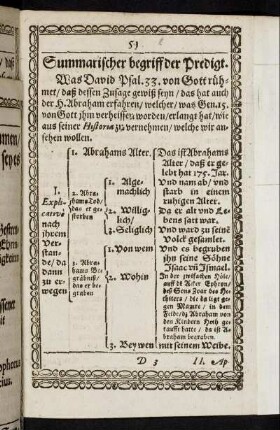 51
Summarischer begriff der Predigt.
Was David Psal. 33. von Gott rüh-
met/ daß dessen Zusage gewiß seyn/ das hat auch
der H. Abraham erfahren/ welcher/ was Gen. 15.
von Gott jhm verheissen worden/ erlangt hat/ wie
aus seiner Historia zu vernehmen/ welche wir an-
sehen wollen.
I.
Expli-
cativè
nach
jhrem
Ver-
stan-
de/ da
dann
zu er-
wegen
1. Abrahams Alter.
Das ist Abrahams
Alter/ daß er ge-
lebt hat 175. Jar.
2. Abra-
hams Tod/
das er ge-
storben
1. Allge-
machlich
Und nam ab/ und
starb in einem
ruhigen Alter.
2. Willig-
lich/
Da er alt und Le-
bens satt war.
3. Seliglich
Und ward zu seinē
Volck gesamlet.
3. Abra-
hams Be-
gräbniß/
das er be-
graben
1. Von wem
Und es begruben
jhn seine Söhne
Isaac uñ Ismael.
2. Wohin
In der zwifachen Höle/
auff dē Acker Ephron/
deß Sons Zoar des He-
thiters/ die da ligt ge-
gen Mamre/ in dem
Felde/ dz Abraham von
den Kindern Heth ge-
kaufft hatte/ da ist Ab-
braham begraben
3. Bey wen
mit seinem Weibe.
D 3
II. Ap